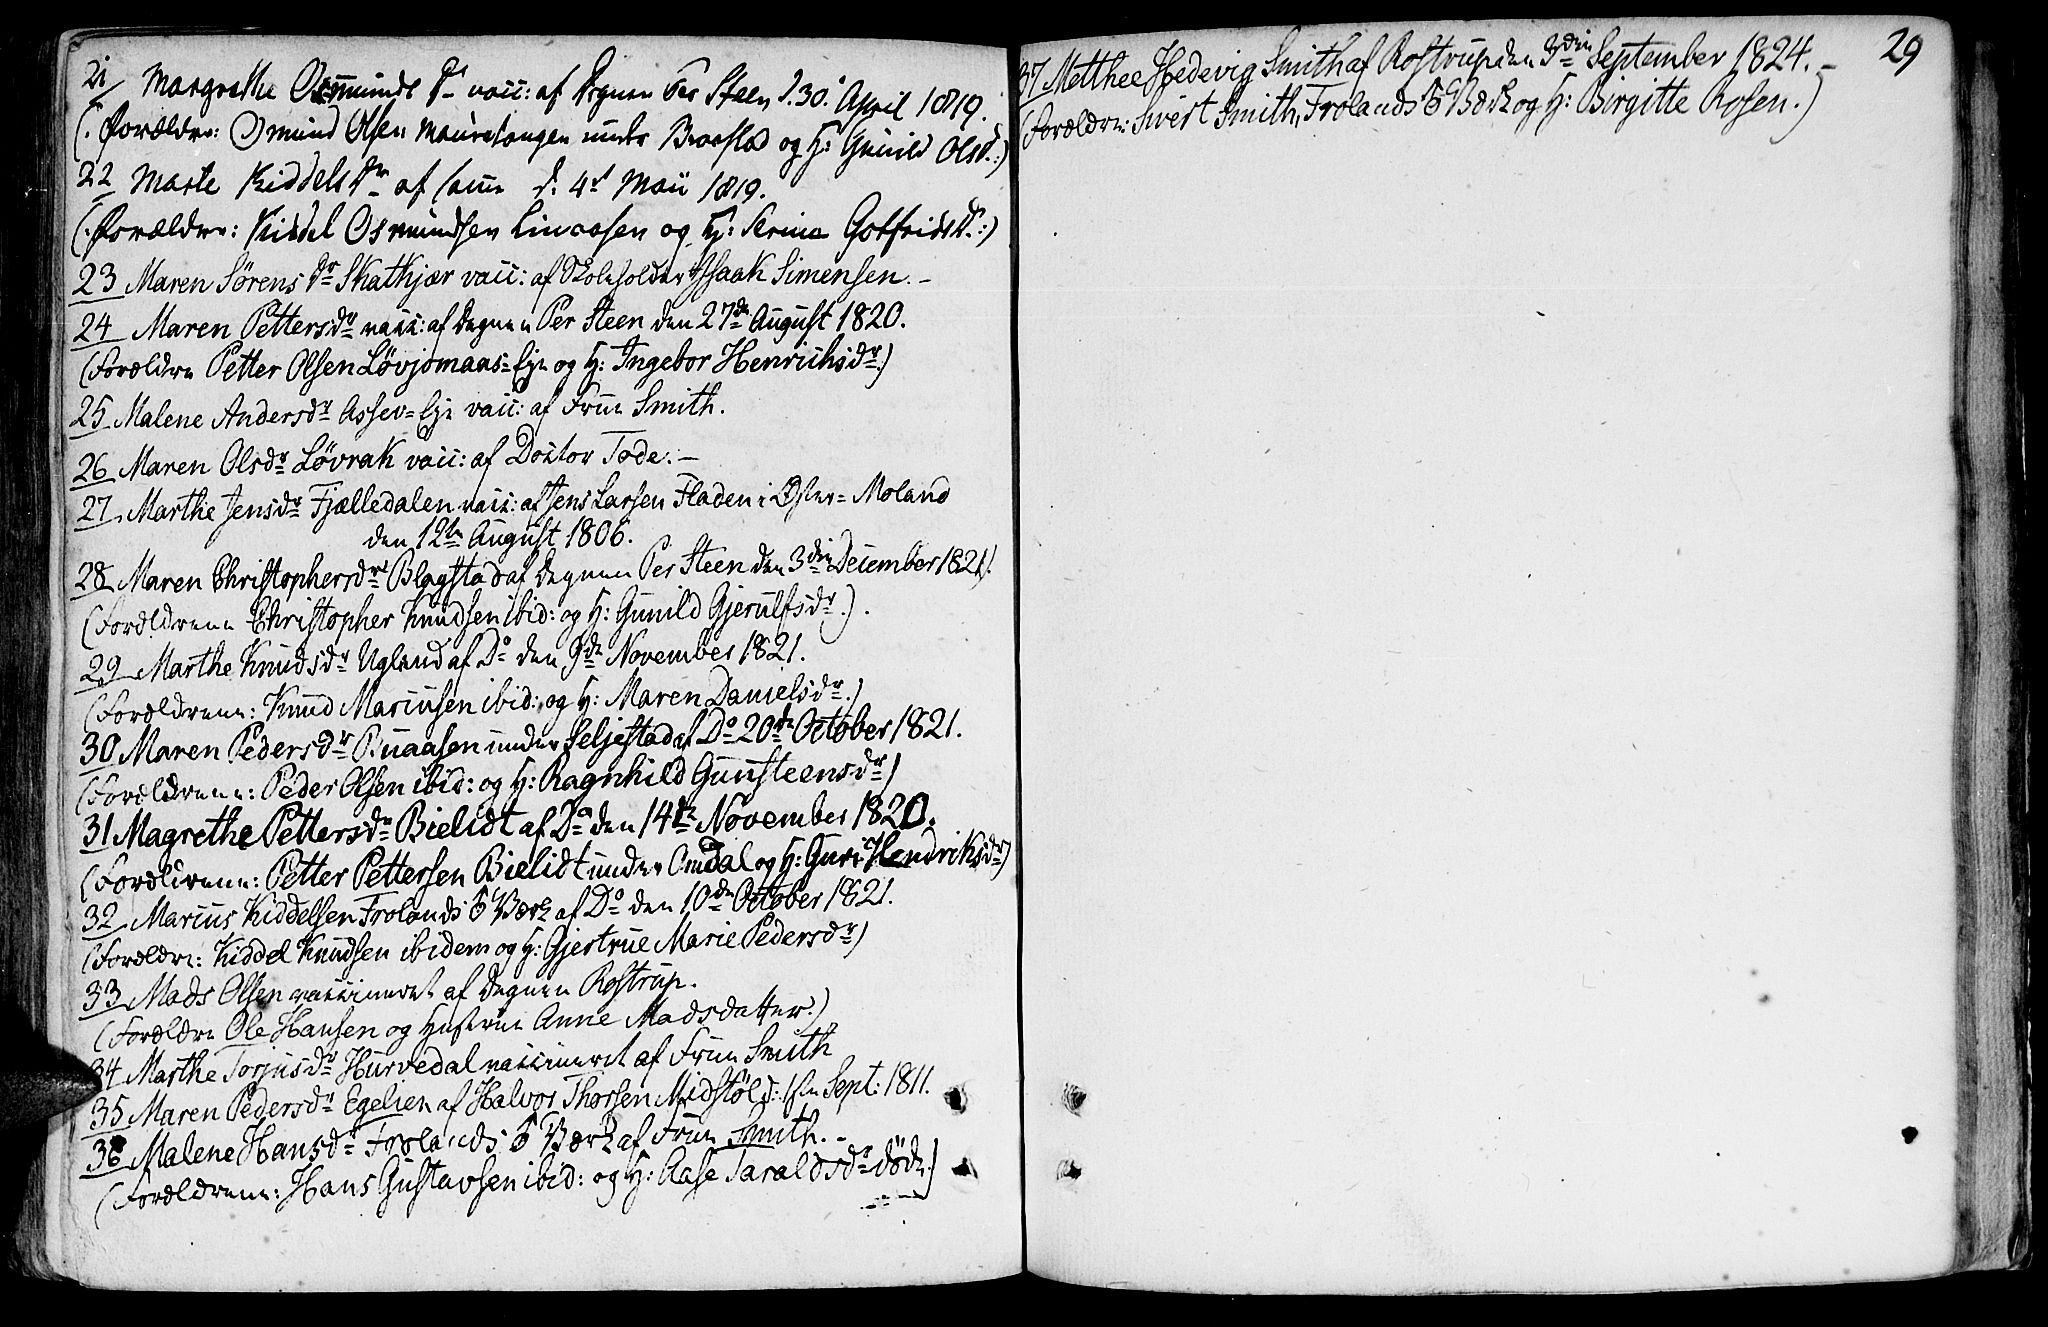 21 Margrethe Osmunds Dr vacc: af Degnen Per Steen d. 30 April 1819.
(: Forældre: Osmund Olsen under og H: Gunild Olsd.:)
22 Marte Kiddels Dr af samme d. 4d Maii 1819.
(: Forældre: Kiddel Osmundsen Linaasen og H: Serina Gotfridsd.:)
23 Maren Sørens dr Skatkjær vacc: af Skoleholder Issaak Simensen.-
24 Maren Pettersdr vacc: af Degnen Per Steen den 27de August 1820.
(Forældre Petter Olsen Løvjomaas-Eje og H: Ingebor Henrichsdr.)
25 Malene Andersdr Assev-Eje vacc: af Frue Smith.
26 Maren Olsdr Løvrak vacc: af Doctor Tode.-
27 Marthe Jensdr Fjælledalen vacc: af Jens Larsen Fladen i Øster-Moland
den 12te August 1806.
28 Maren Christophersdr Blagstad af Degnen Per Steen den 3die December 1821.
(Forældrene Christopher Knudsen ibid: og H: Gunild Gjerulfsdr.).
29 Marthe Knudsdr Ugland af Do den 9de November 1821.
(Forældrene: Knud Mariusen ibid: og H: Maren Danielsdr.)
30 Maren Pedersdr Buaasen under Seljestad af Do 20de October 1821.
(Forældrene: Peder Olsen ibid: og H: Ragnhild Gunsteensdr)
31 Magrethe Pettersdr Bielidt af Do den 14de November 1820.
(Forældrene: Petter Pettersen Bielidt under Omdal og H: Guri Hendriksdr)
32 Marius Kiddelsen Frolands Værk af Do den 10de October 1821.
(Forældre: Kiddel Knudsen ibidem og H: Gjertrue Marie Pedersdr)
33 Mads Olsen vaccineret af Degnen Rostrup.
(Forældre Ole Hansen og Hustrue Anne Madsdatter.)
34 Marthe Torjusdr Hurvedal vaccineret af Frue Smith
35 Maren Pedersdr Egelien af Halvor Thorsen Midstøl d: 1ste Sept: 1811.
36 Malene Hansdr Frolands Værk af Frue Smith.-
(Forældrene: Hans Gustavsen ibid: og H: Aase Taraldsdr døde.)
29
37 Metthee Hedevig Smith af Rostrup den 3die September 1824.-
(Forældre: Sivert Smith, Frolands Værk og H: Birgitte Rosen.)